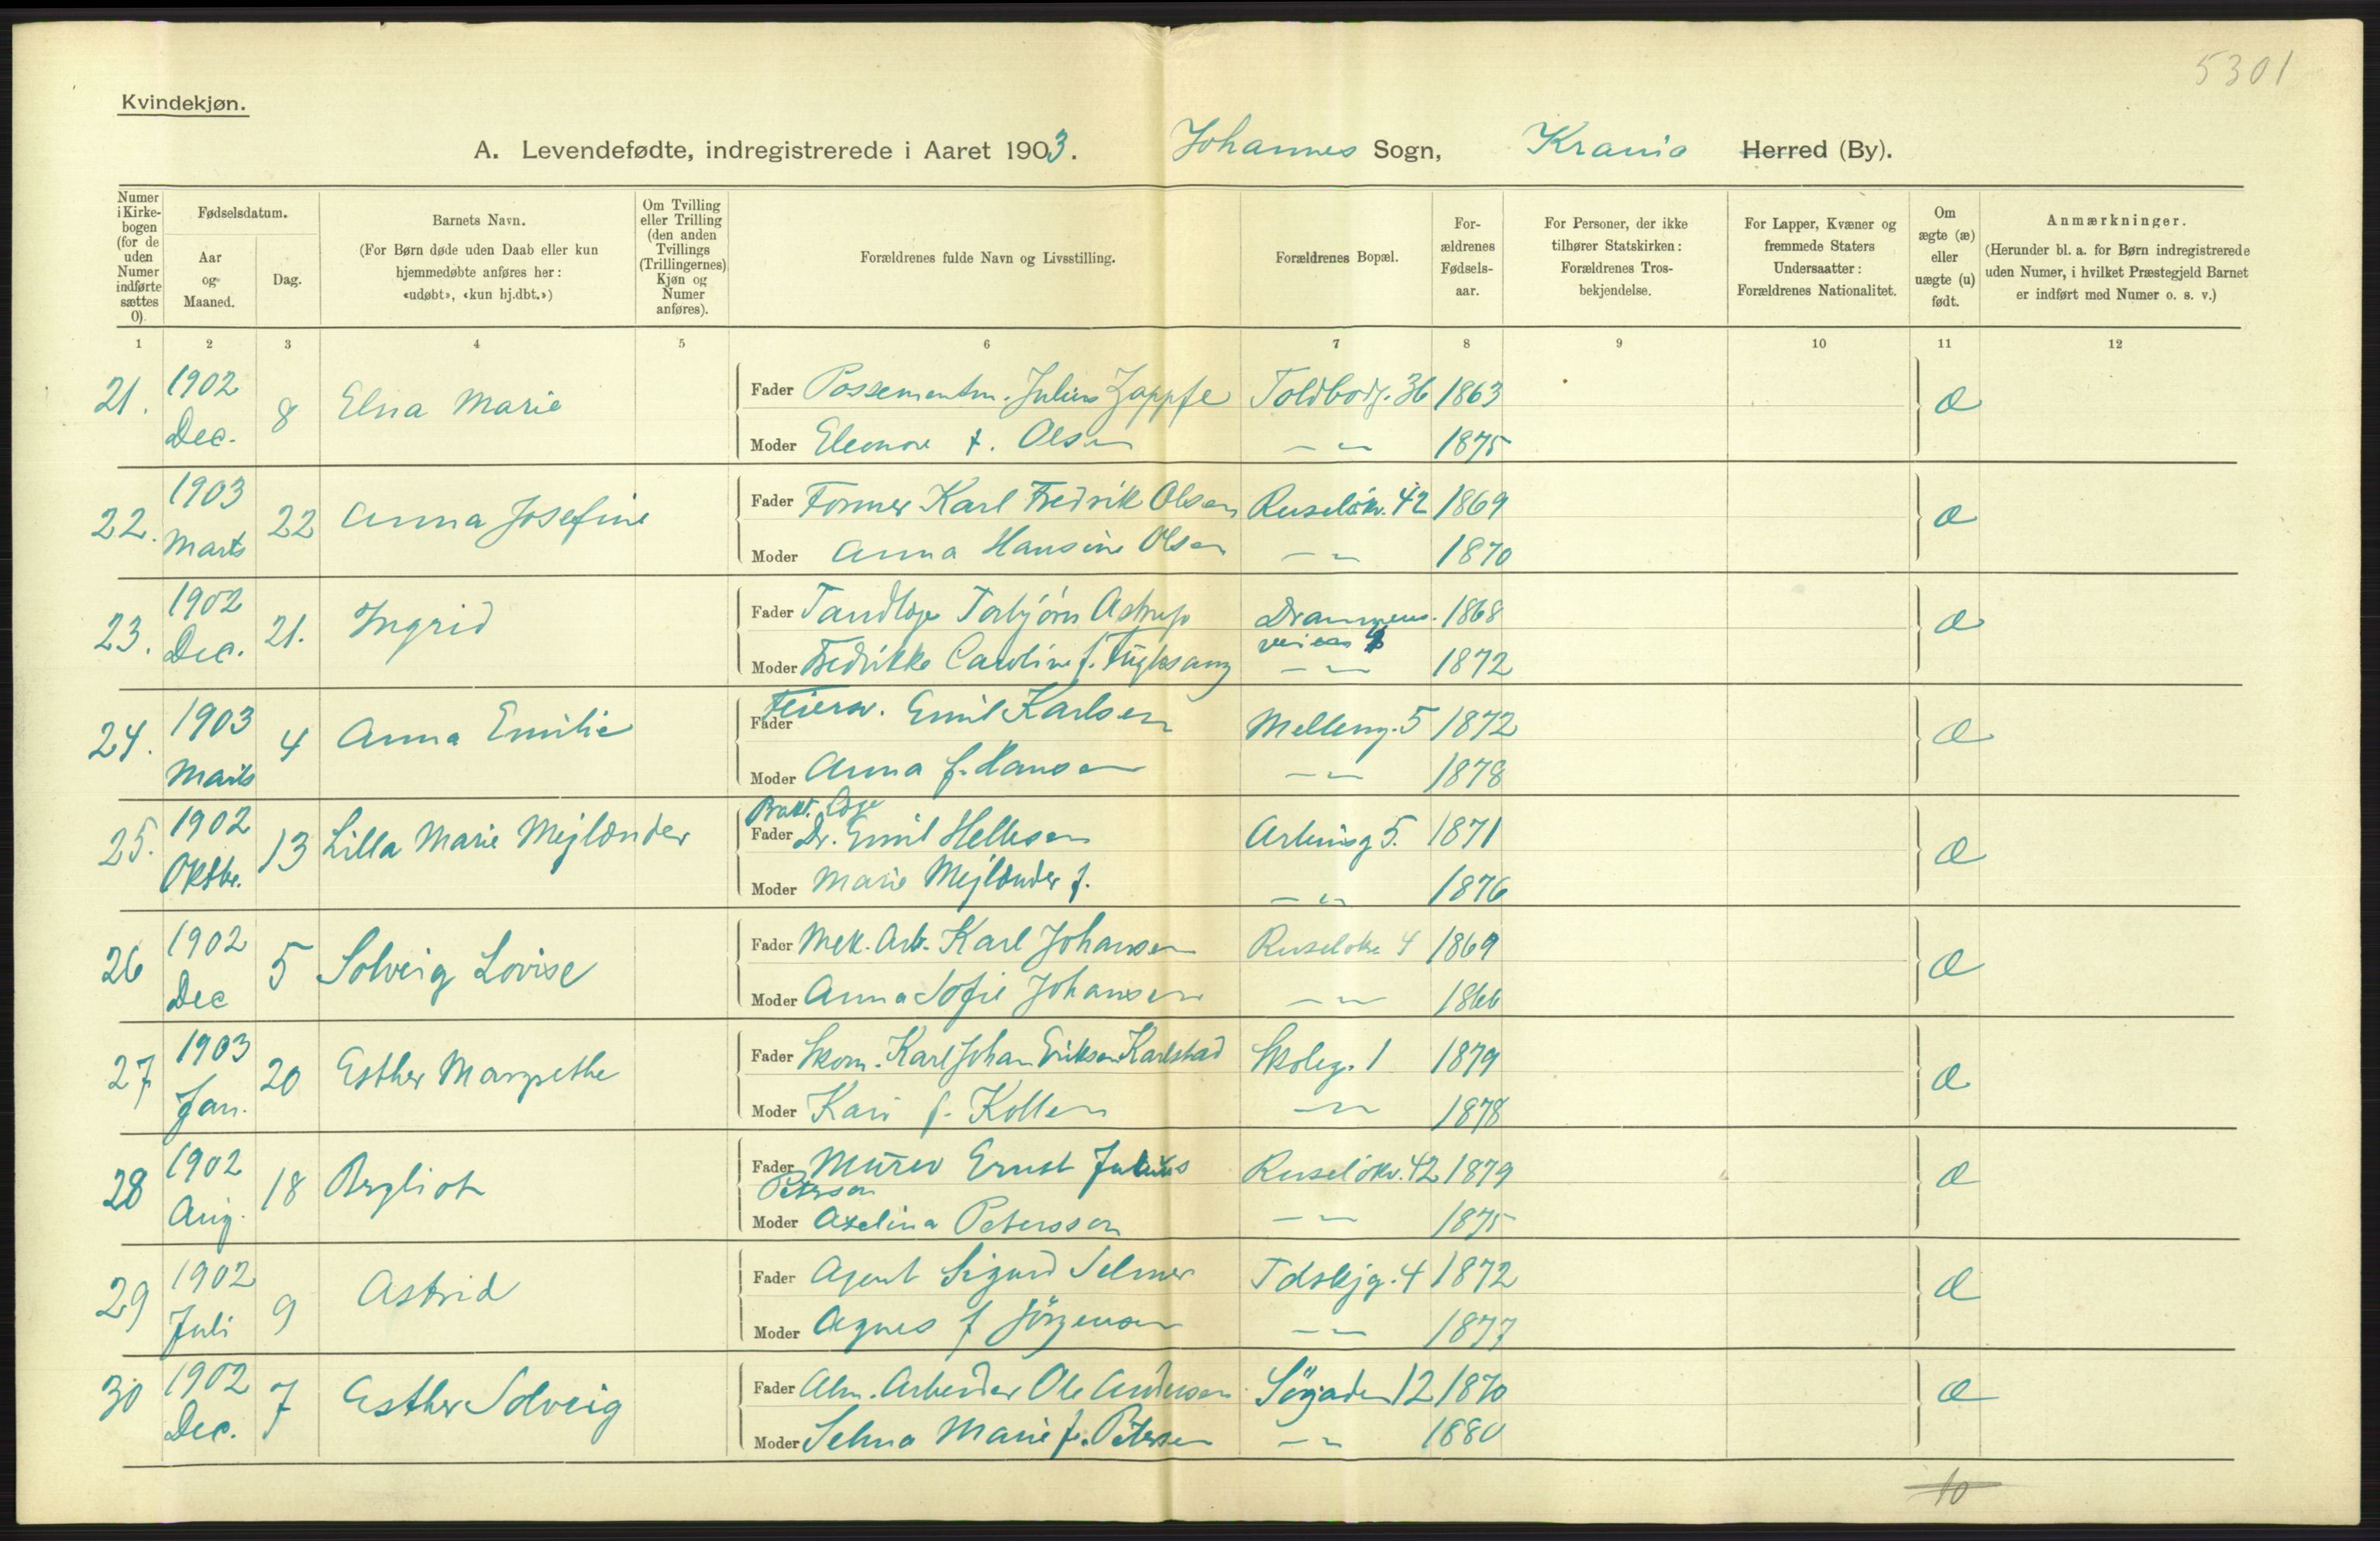 5301
Kvindekjøn.
A. Levendefødte, indregistrerede i Aaret 1903. Johannes Sogn, Krania Herred (By).
Numer i Kirkebogen (for de uden Numer indførte sættes 0).
Fødselsdatum.
Aar og Maaned.
Dag.
Barnets Navn.
(For Børn døde uden Daab eller kun hjemmedøbte anføres her: «udøbt», «kun hj.dbt.»)
Om Tvilling eller Trilling (den anden Tvillings (Trillingernes) Kjøn og Numer anføres).
Forældrenes fulde Navn og Livsstilling.
Forældrenes Bopæl.
Forældrenes Fødselsaar.
For Personer, der ikke tilhører Statskirken: Forældrenes Trosbekjendelse.
For Lapper, Kvæner og fremmede Staters Undersaatter: Forældrenes Nationalitet.
Om ægte (æ) eller uægte (u) født.
Anmærkninger.
(Herunder bl. a. for Børn indregistrerede uden Numer, i hvilket Præstegjeld Barnet er indført med Numer o. s. v.)
1 2 3 4 5 6 7 8 9 10 11 12
21. 1902 Dec. 8 Elna Marie Fader Possementm. Julius Zappfe Toldbodg. 36 1863 æ
Moder Eleonore f. Olsen — „ — 1875
22. 1903 Marts 22 Anna Josefine Fader Former Karl Fredrik Olsen Ruseløkv. 42 1869 æ
Moder Anna Hansine Olsen — „ — 1870
23. 1902 Dec. 21. Ingrid Fader Tandlæge Torbjørn Astrup Drammens- veien 1868 æ
Moder Fredrikke Caroline f. Fuglesang — „ — 1872
24. 1903 Marts 4 Anna Emilie Fader Feiersv. Emil Karlsen Melleng. 5 1872 æ
Moder Anna f. Hansen — „ — 1878
25. 1902 Oktbr. 13 Lilla Marie Mejlænder Fader Prakt. Læge Dr. Emil Hellesen Arbinsg 5. 1871 æ
Moder Marie Mejlænder f. — „ — 1876
26 1902 Dec 5 Solveig Lovise Fader Mek. Arb. Karl Johansen Ruseløkv 4 1869 æ
Moder Anna Sofie Johansen — „ — 1866
27 1903 Jan. 20 Esther Margrethe Fader Skom. Karl Johan Eriksen Karlstad Skoleg. 1 1879 æ
Moder Kari f. Kollen — „ — 1878
28 1902 Aug. 18 Bergliot Fader Murer Ernst Julius Peterson Ruseløkv. 42 1879 æ
Moder Axelina Petersson — „ — 1875
29 1902 Juli 9 Astrid Fader Agent Sigurd Selmer Tdskjg. 4 1872 æ
Moder Agnes f Jörgensen — „ — 1877
30 1902 Dec. 7 Esther Solveig Fader Alm. Arbeider Ole Andersen Søgaden 12 1870 æ
Moder Selma Marie f. Petersen — „ — 1880
10